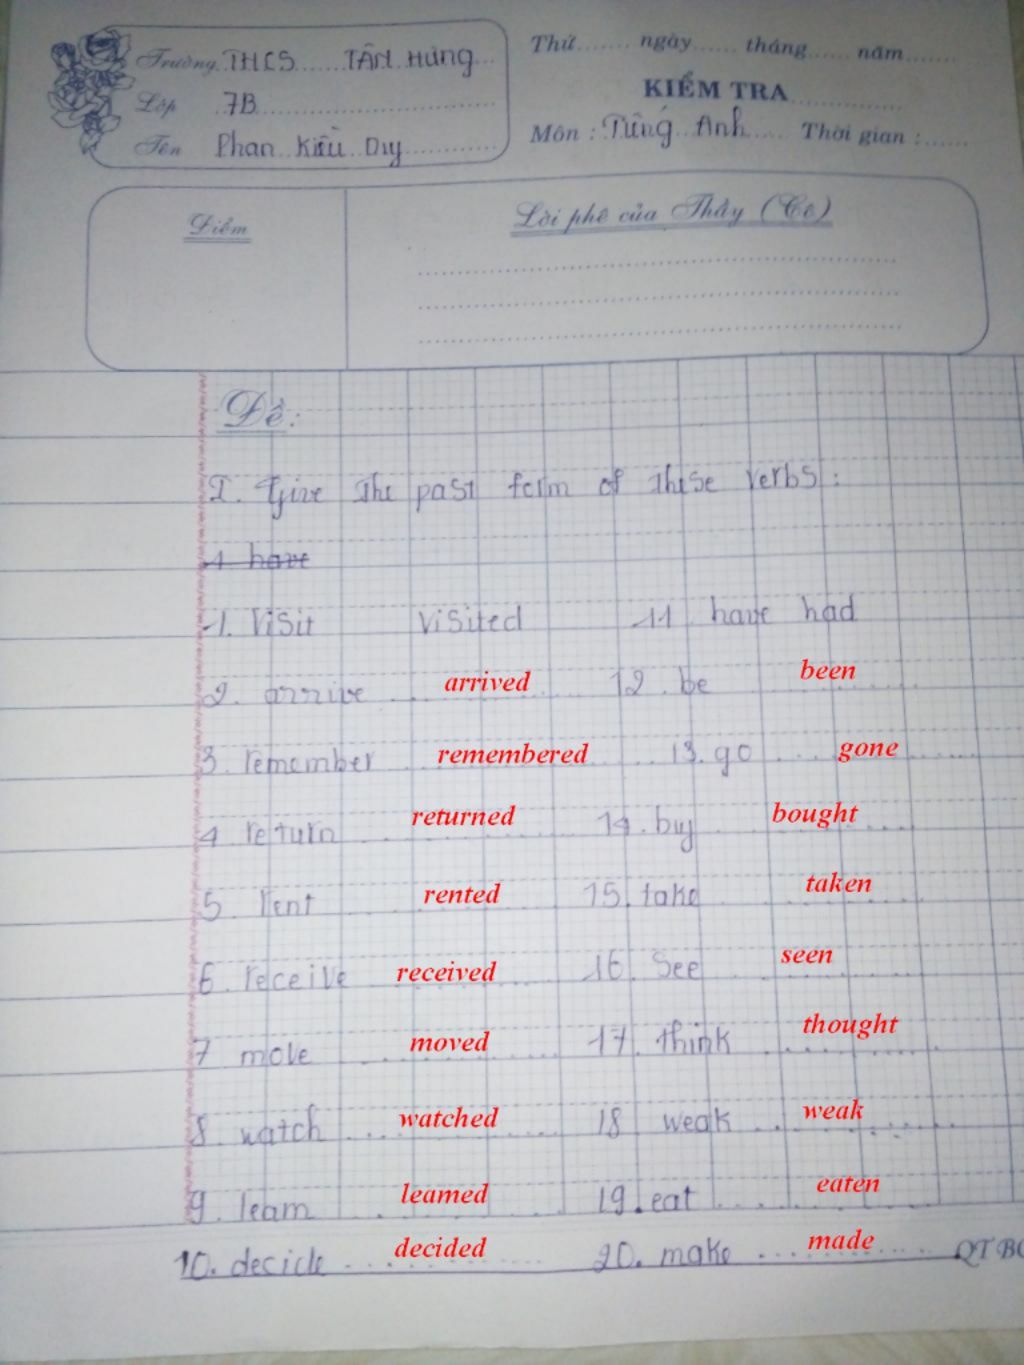 Trường THCS TÂN Hưng
Lớp 7B
Tên Phan Kiều Duy
Thứ....... ngày...... tháng...... năm.......
KIỂM TRA
Môn : Tiếng Anh Thời gian :......
Điểm
Lời phê của Thầy (Cô)
Đề:
I. Give The past form of these verbs :
1 have
1. Visit visited 11 have had
2. arrive arrived 12. be been
3. remember remembered 13. go gone
4 return returned 14. buy bought
5. rent rented 15. take taken
6. receive received 16. See seen
7 move moved 17. think thought
8. watch watched 18 weak weak
9. leam leamed 19. eat eaten
10. decide decided 20. make made
QT BO